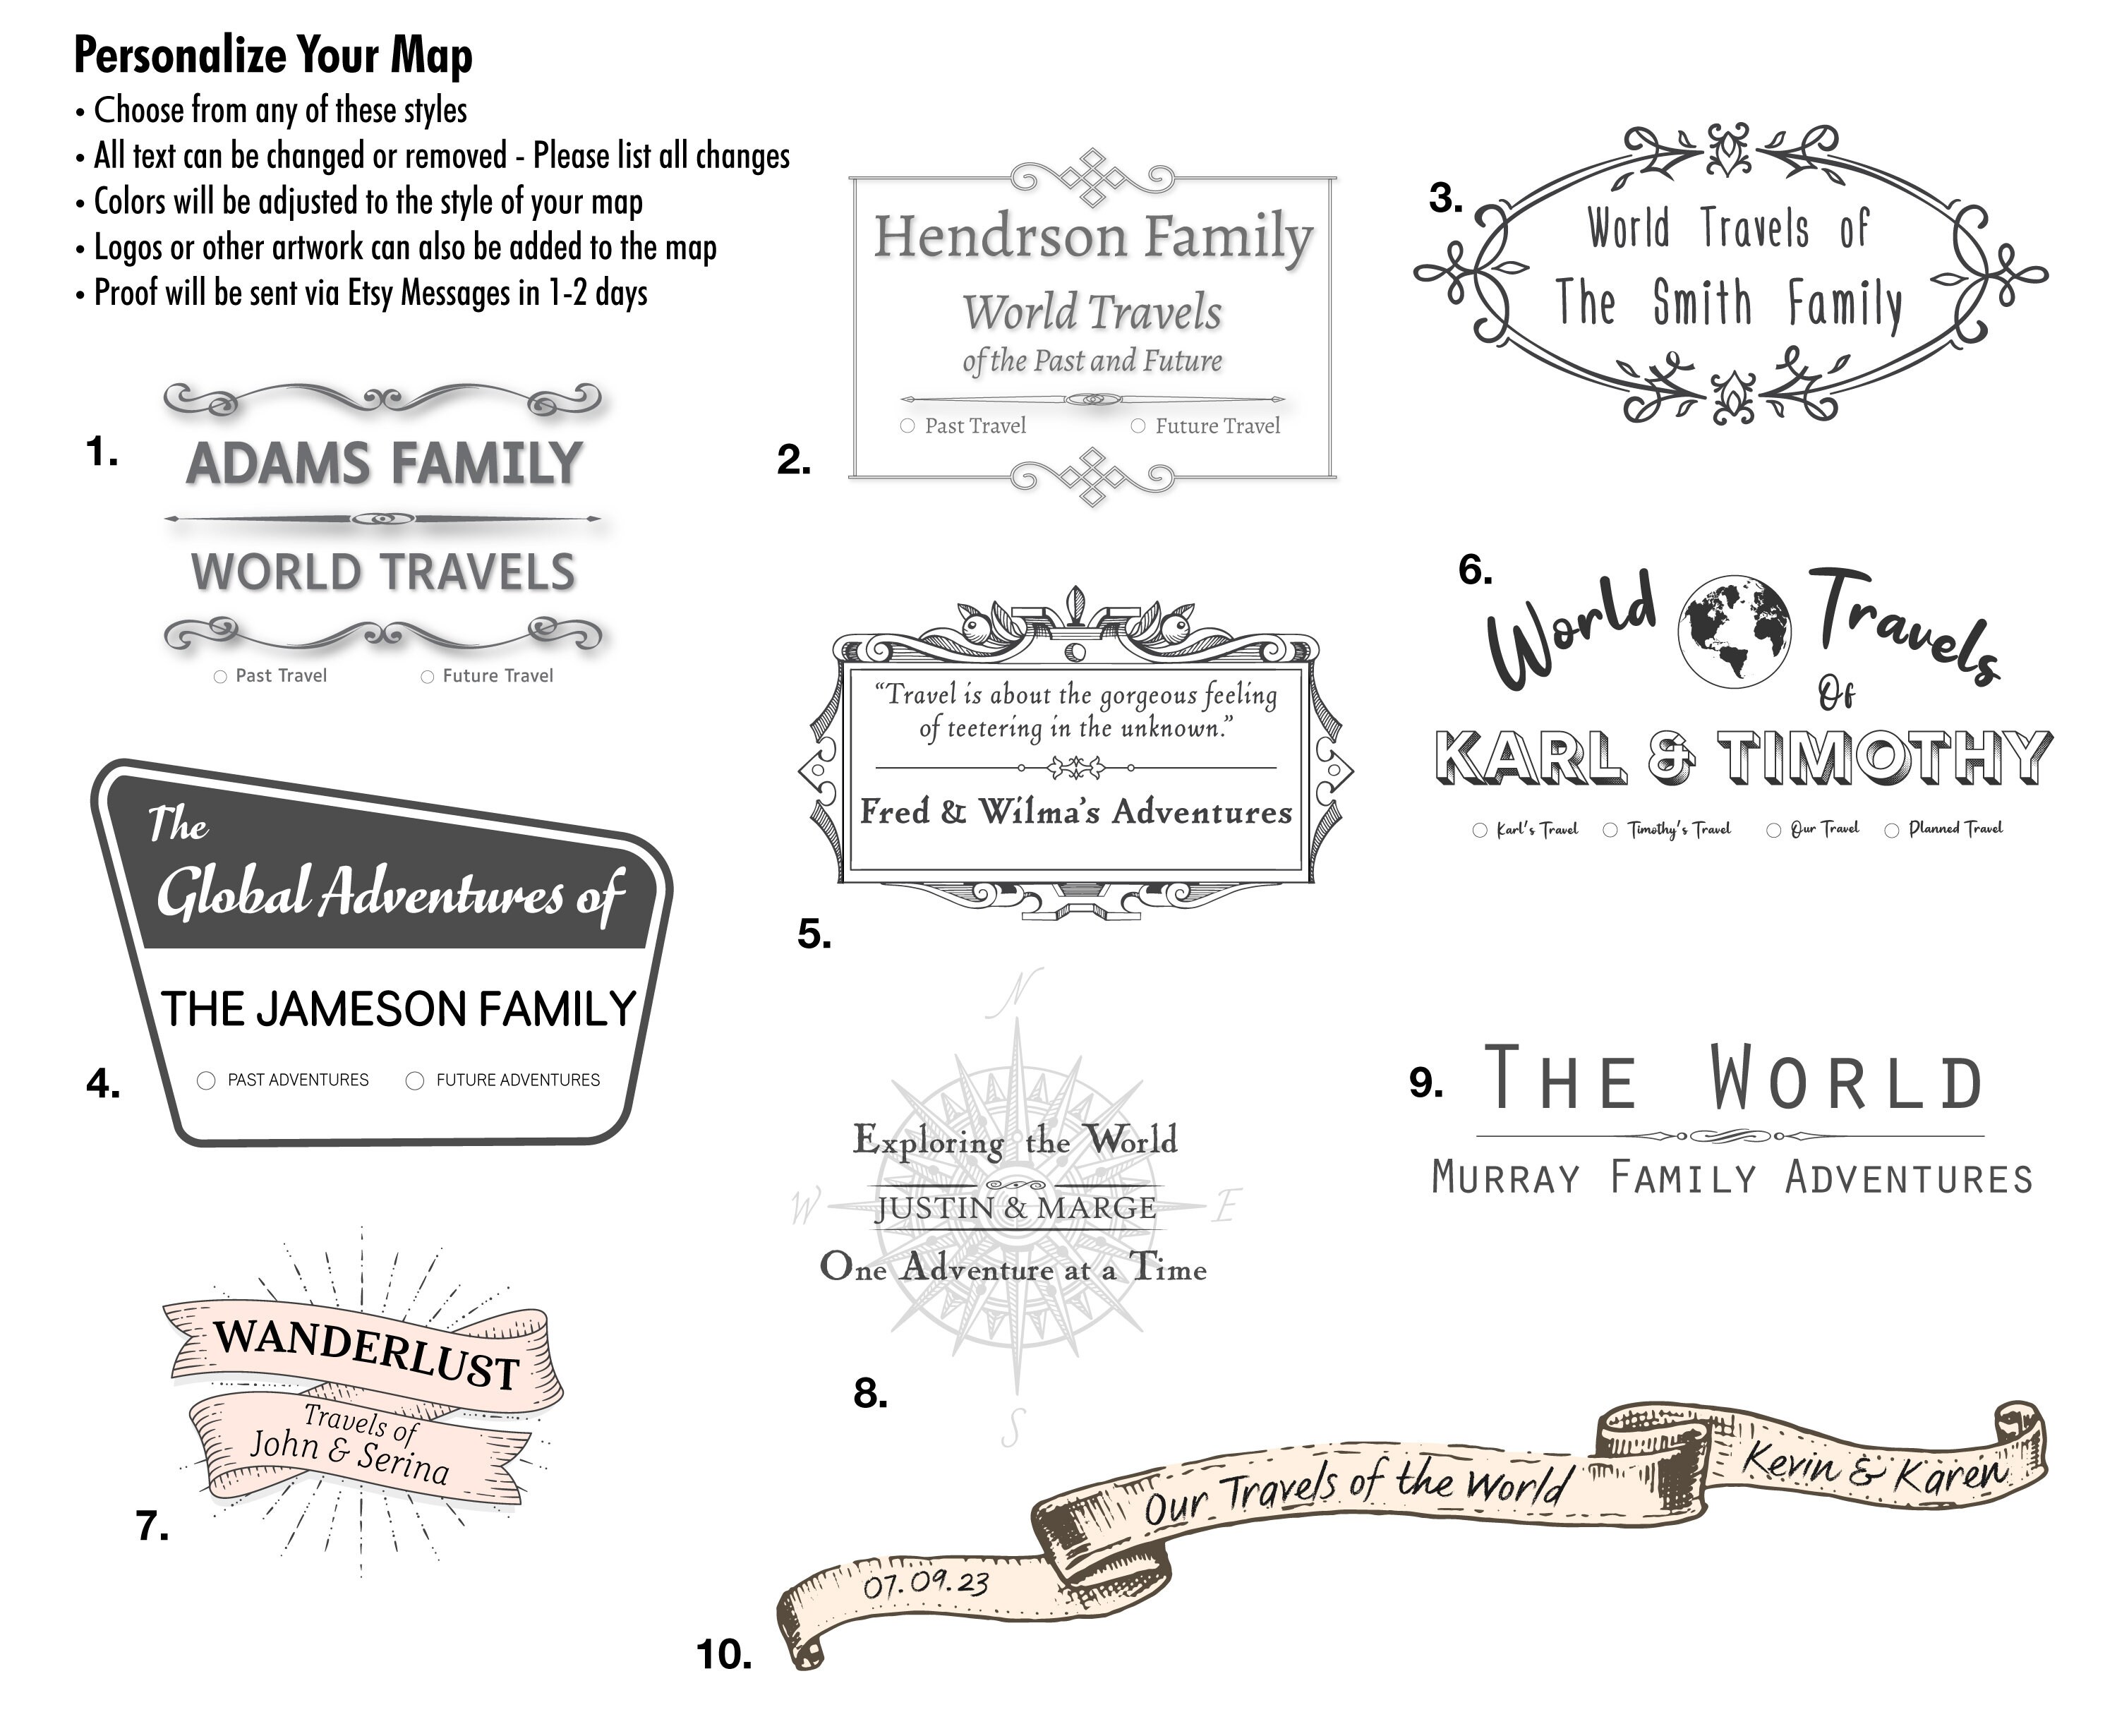 Personalize Your Map
• Choose from any of these styles
• All text can be changed or removed - Please list all changes
• Colors will be adjusted to the style of your map
• Logos or other artwork can also be added to the map
• Proof will be sent via Etsy Messages in 1-2 days
1.
ADAMS FAMILY
WORLD TRAVELS
Past Travel Future Travel
2.
Hendrson Family
World Travels
of the Past and Future
Past Travel Future Travel
3.
World Travels of
The Smith Family
4.
The
Global Adventures of
THE JAMESON FAMILY
PAST ADVENTURES FUTURE ADVENTURES
5.
“Travel is about the gorgeous feeling
of teetering in the unknown.”
Fred & Wilma’s Adventures
6.
World Travels
Of
KARL & TIMOTHY
Karl's Travel Timothy's Travel Our Travel Planned Travel
7.
WANDERLUST
Travels of
John & Serina
8.
N
Exploring the World
W JUSTIN & MARGE E
One Adventure at a Time
S
9.
THE WORLD
MURRAY FAMILY ADVENTURES
10.
07.09.23
Our Travels of the World
Kevin & Karen